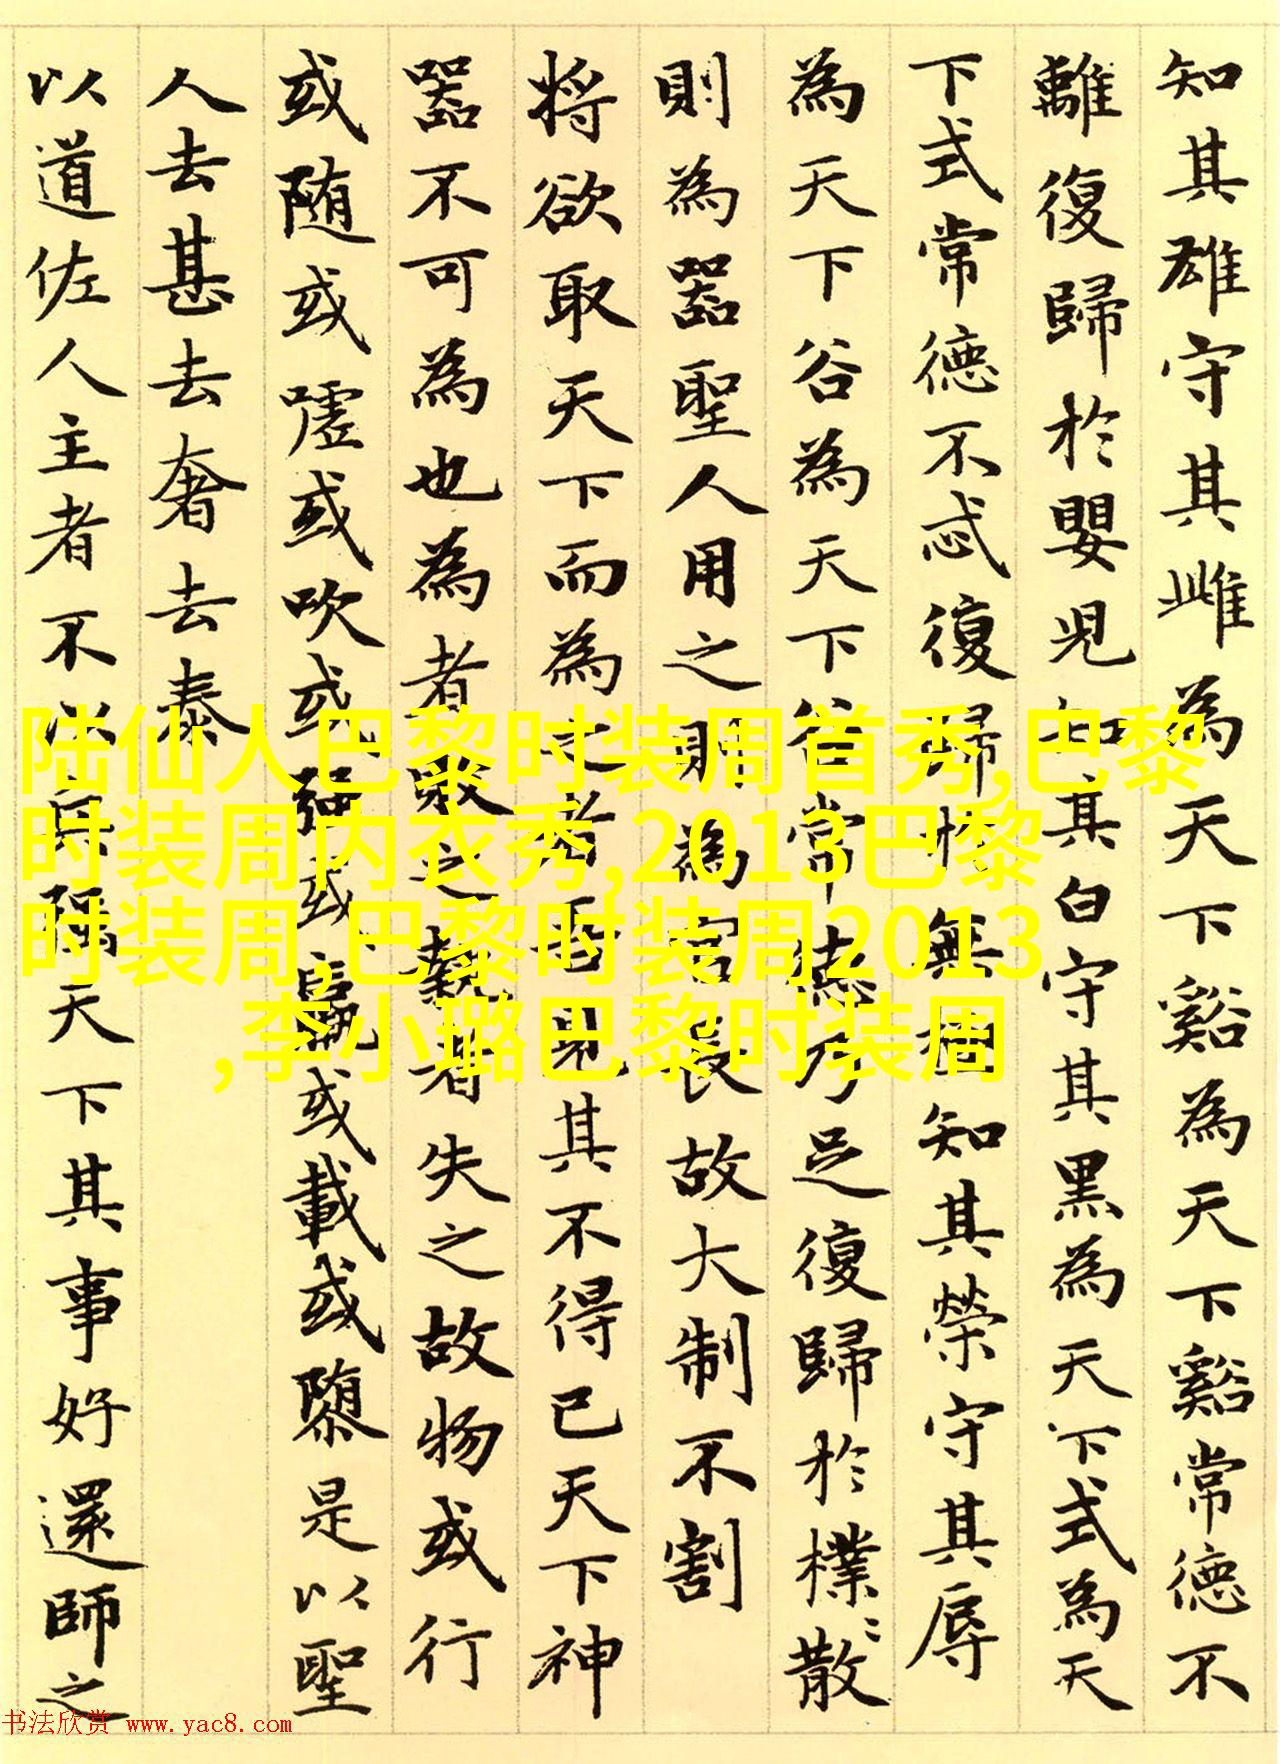 知其雄守其雌為天下谿為天下谿常德不
離復歸於嬰兒知其白守其黑為天下式為天
下式常德不忒復歸於無極知其榮守其辱
為天下谷為天下谷常德乃足復歸於樸〻散
則為器聖人用之則為官長故大制不割
将欲取天下而為之者吾見其不得已天下神
器不可為也為者敗之執者失之故物或行
或随或嘘或吹或强或羸或載或隳是以聖
人去甚去奢去泰
以道佐人主者不以兵强天下其事好還師之
陆仙人巴黎时装周首秀,巴黎
时装周内衣秀,2013巴黎
时装周,巴黎时装周2013
,李小璐巴黎时装周
书法欣赏 www.yac8.com